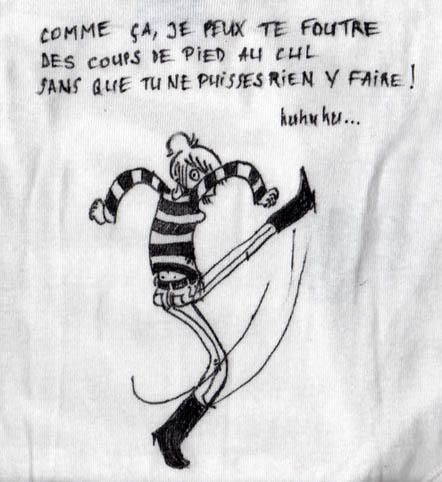 COMME ÇA, JE PEUX TE FOUTRE
DES COUPS DE PIED AU CUL
SANS QUE TU NE PUISSES RIEN Y FAIRE !
huhuhu...